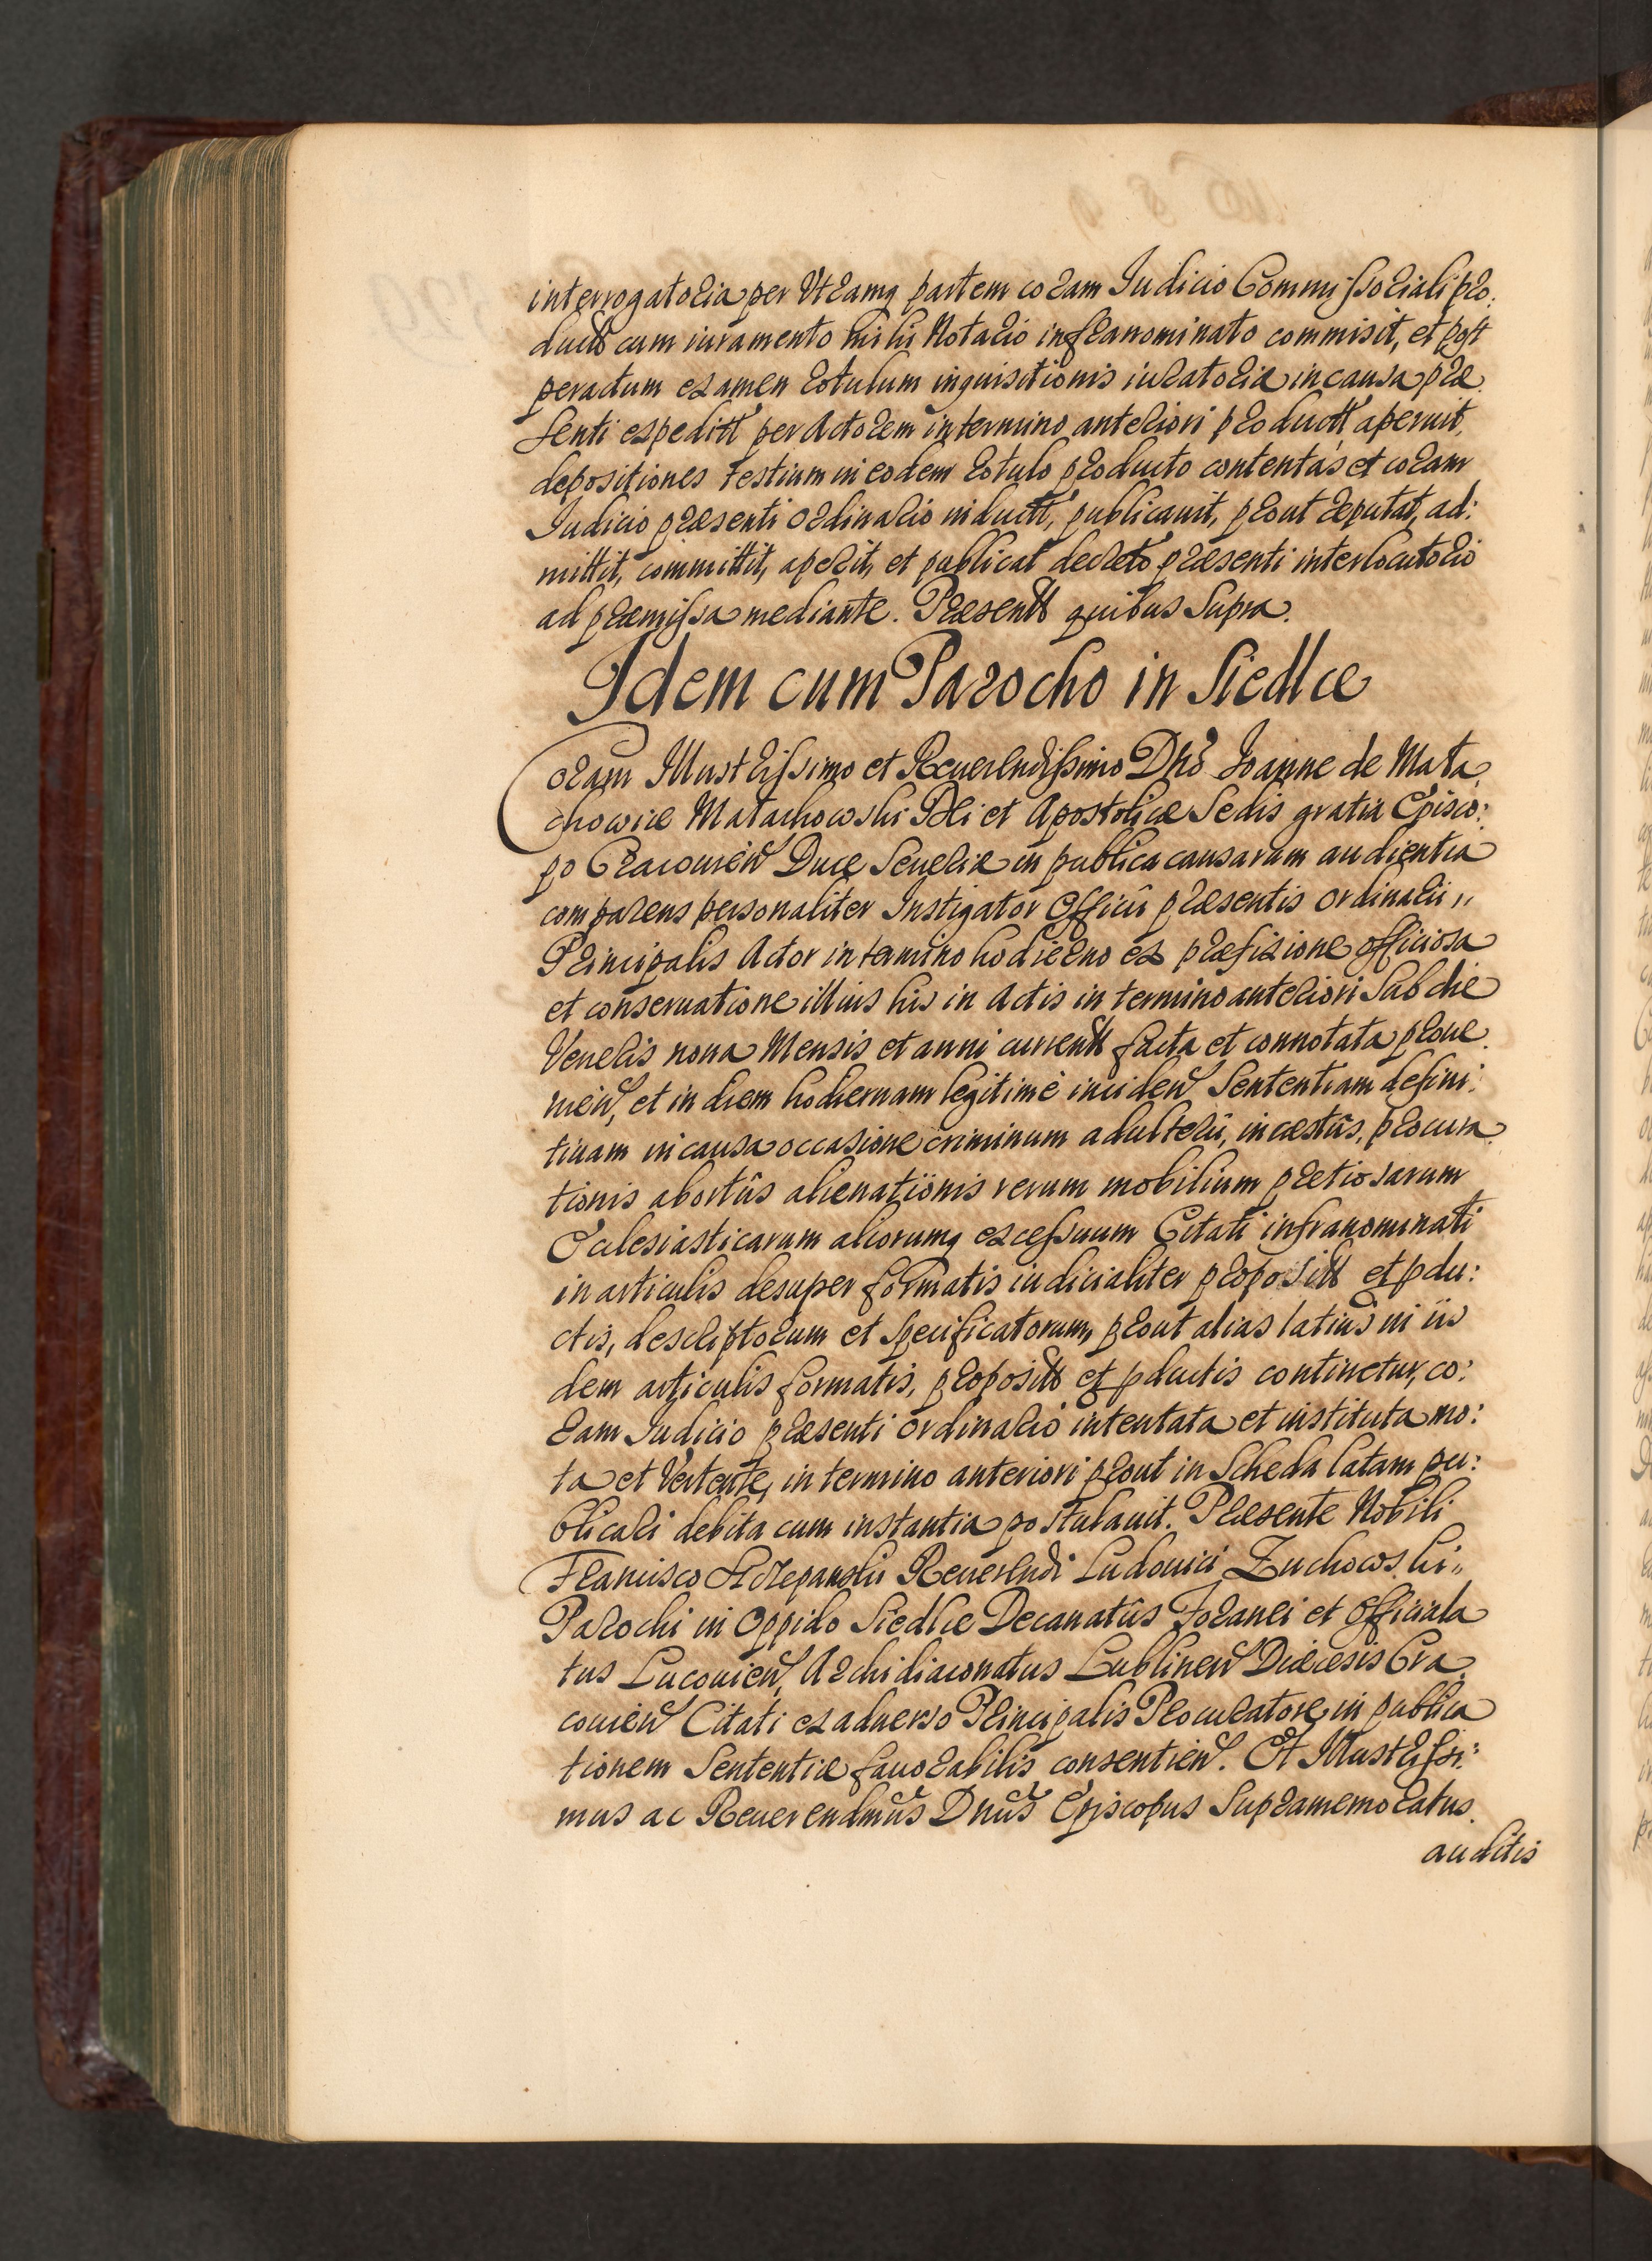 interrogatoria per Vtramq partem coram Iudicio Commissoriali pro:
ductt cum iuramento mihi Notario infranominato commisit, et post
peractum examen rotulum inquisitionis iuratoriæ in causa præ
senti expeditt per Actorem in termino anteriori productt aperuit,
depositiones testium in eodem rotulo producto contentas et coram
Iudicio præsenti ordinario inductt, publicauit, prout reputat, ad:
mittit, committit, aperit, et publicat decreto præsenti interlocutorio
ad præmissa mediante. Præsentt quibus Supra.
Idem cum Parocho in Siedlce
Coram Illustrissimo et Reuerendissimo Dno Ioanne de Mała
chowice Małachowski Dei et Apostolicæ Sedis gratia Episco:
po Cracouien Duce Seueriæ in publica causarum audientia
comparens personaliter Instigator Officii præsentis ordinarii,,
Principalis Actor in termino hodierno ex præfixione officiosa
et conseruatione illius his in Actis in termino anteriori Sub die
Veneris nona Mensis et anni currentt facta et connotata proue
nien, et in diem hodiernam legitimè inciden Sententiam defini:
tiuam in causa occasione criminum adulterii, incæstûs, procura
tionis abortûs alienationis rerum mobilium prætiosarum
Ecclesiasticarum aliorumq excessuum Citati infranominati
in articulis desuper formatis iudicialiter propositt et pdu:
ctis, descriptorum et specificatorum, prout alias latius in iis
dem articulis formatis, propositt et pductis continetur, co:
ram Iudicio præsenti ordinario intentata et instituta mo:
ta et Vertente, in termino anteriori prout in Scheda latam pu:
blicari debita cum instantia postulauit. Præsente Nobili
Francisco Sczepanski Reuerendi Ludouici Zuchowski,,
Parochi in Oppido Siedlce Decanatûs Foranei et Officiala
tus Lucouien, Archidiaconatus Lublinen Diæcesis Cra
couien Citati ex aduerso Principalis Procuratore in publica
tionem Sententiæ fauorabilis consentien. Et Illustrissi:
mus ac Reuerendmus Dnus Episcopus Supramemoratus.
auditis